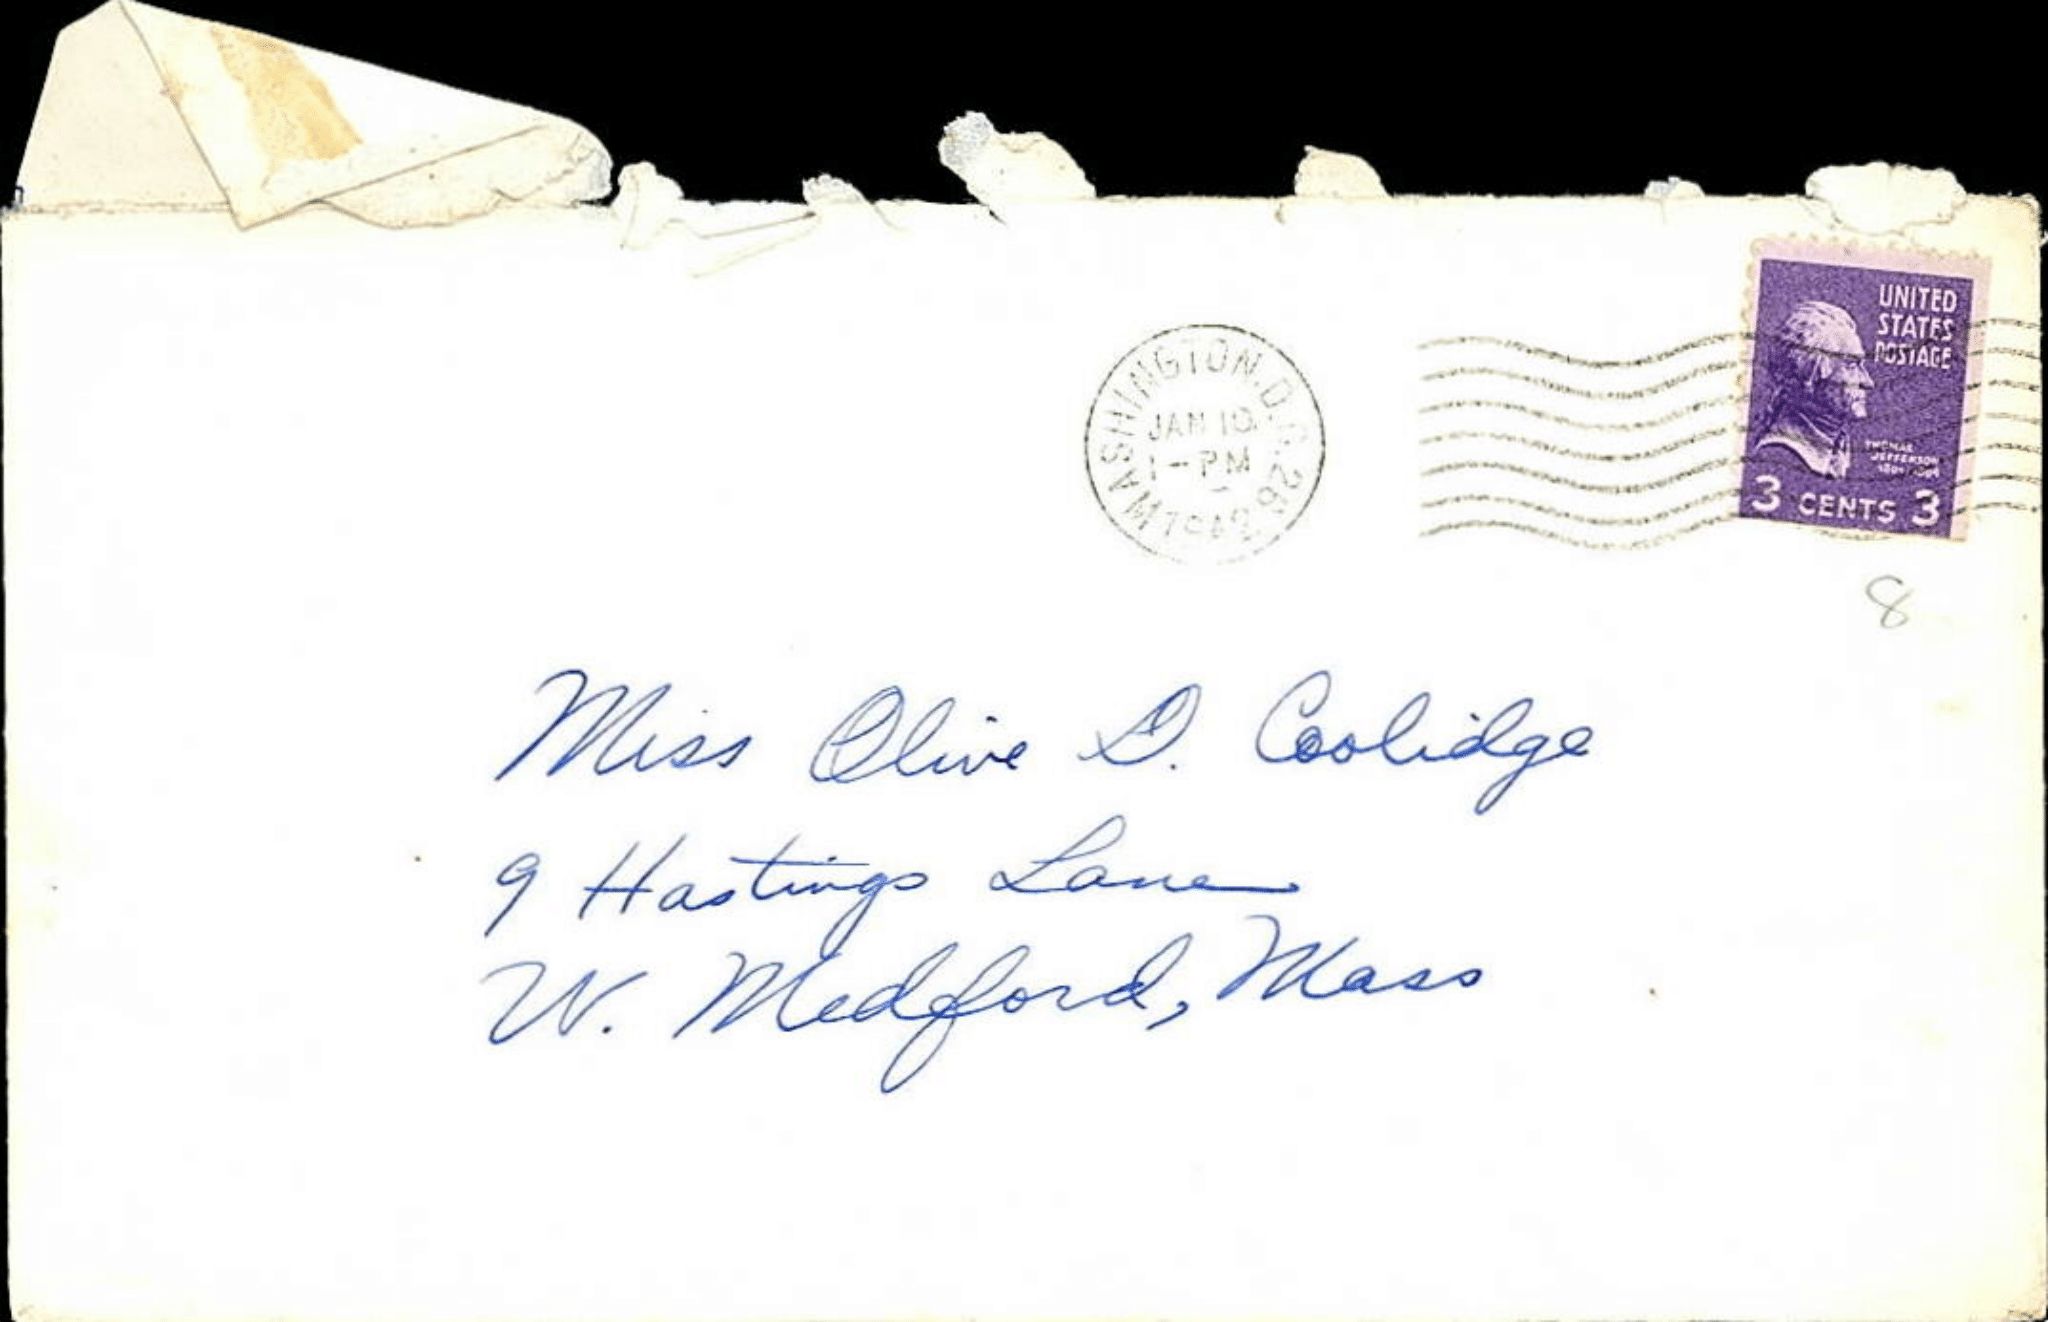 WASHINGTON, D.C. 26
JAN 10
1-PM
UNITED
STATES
POSTAGE
THOMAS
JEFFERSON
3 CENTS 3
8
Miss Olive D. Coolidge
9 Hastings Lane
W. Medford, Mass